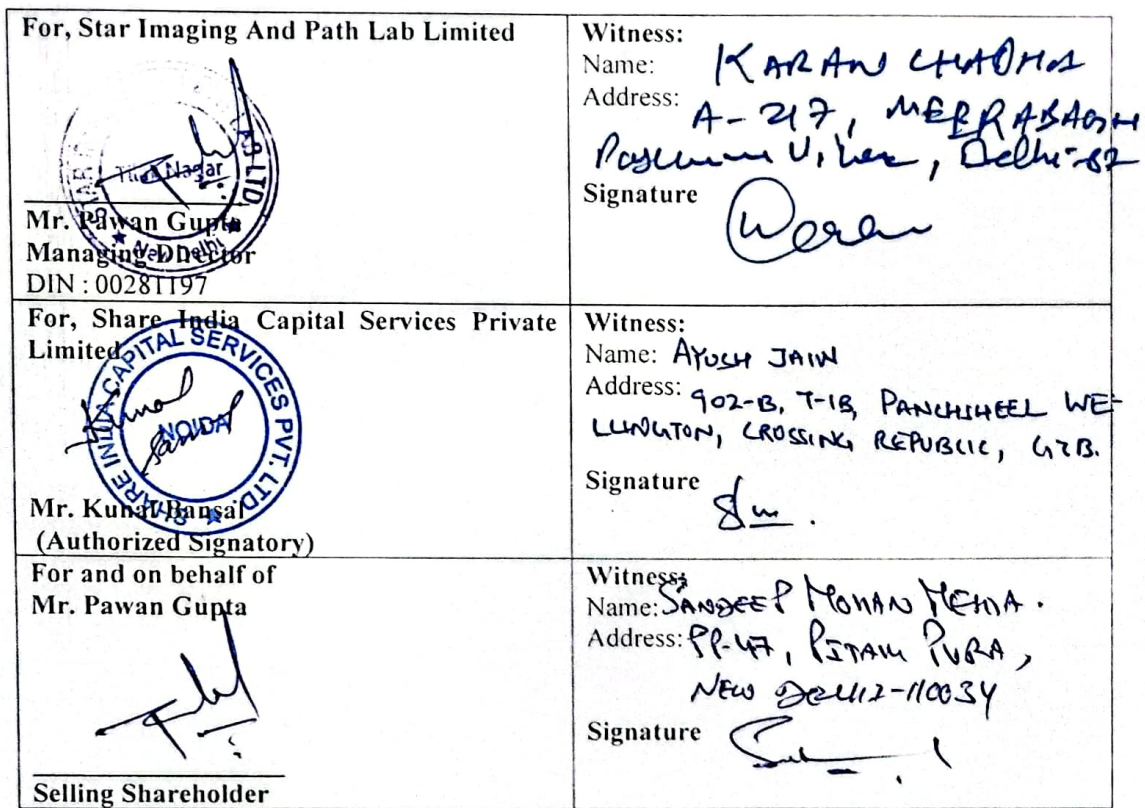 For, Star Imaging And Path Lab Limited
LAB LTD.
Tilak Nagar
New Delhi
Mr. Pawan Gupta
Managing Director
DIN : 00281197
Witness:
Name: KARAN CHADHA
Address:
A-217, MEERABAGH
Paschim Vihar, Delhi-
Signature
For, Share India Capital Services Private
Limited
SHARE INDIA CAPITAL SERVICES PVT. LTD.
NOIDA
Kunal
Bansal
Mr. Kunal Bansal
(Authorized Signatory)
Witness:
Name: AYUSH JAIN
Address: 902-B, T-1B, PANCHSHEEL WE-
LLINGTON, CROSSING REPUBLIC, GZB.
Signature
For and on behalf of
Mr. Pawan Gupta
Selling Shareholder
Witness:
Name: SANDEEP MOHAN MEHTA.
Address: PP-47, PITAM PURA,
NEW DELHI-110034
Signature